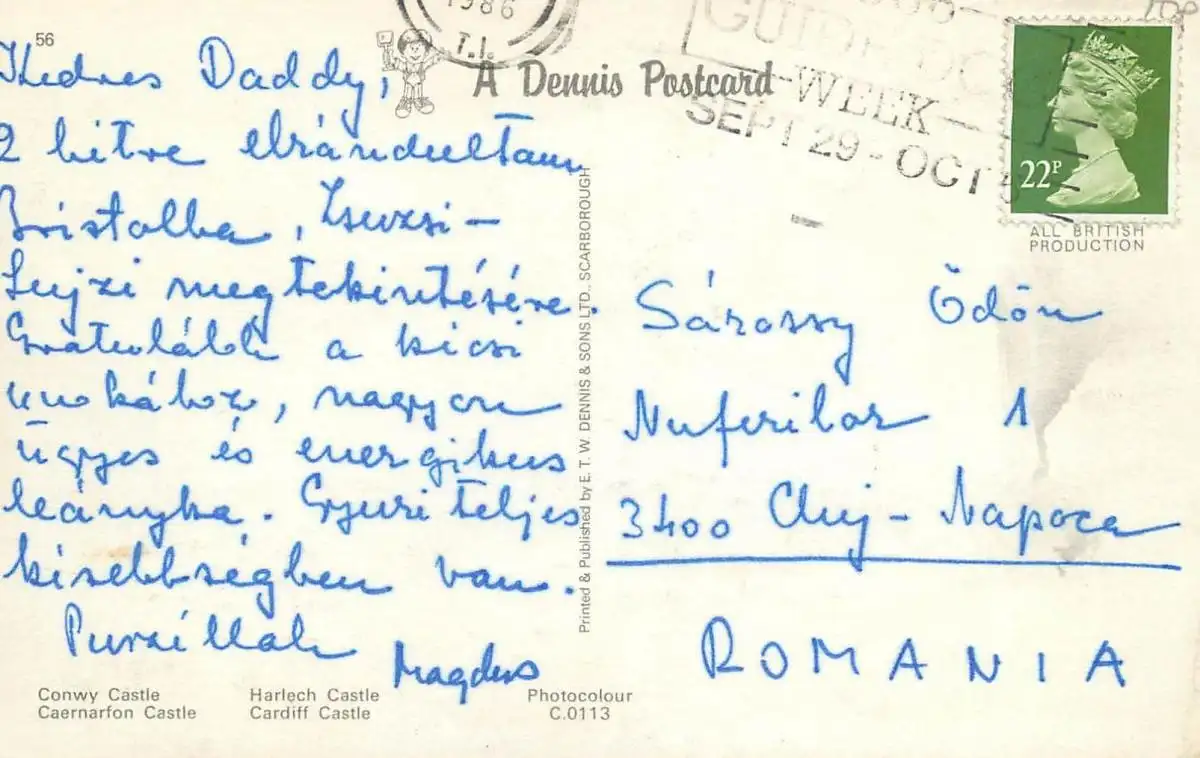 56
Kedves Daddy,
2 hétre elrándultam
Bristolba, Zsuzsi-
Lujzi megtekintésére.
Gratulálok a kicsi
unokához, nagyon
ügyes és energikus
leányka. Gyuri teljes
kisebbségben van.
Puszillak
Magdus
1986
T.I.
A Dennis Postcard
WEEK
SEPT 29 - OCT
22P
ALL BRITISH
PRODUCTION
Printed & Published by E. T. W. DENNIS & SONS LTD., SCARBOROUGH
Sárossy Ödön
Nuferilor 1
3400 Cluj - Napoca
ROMANIA
Conwy Castle
Caernarfon Castle
Harlech Castle
Cardiff Castle
Photocolour
C.0113